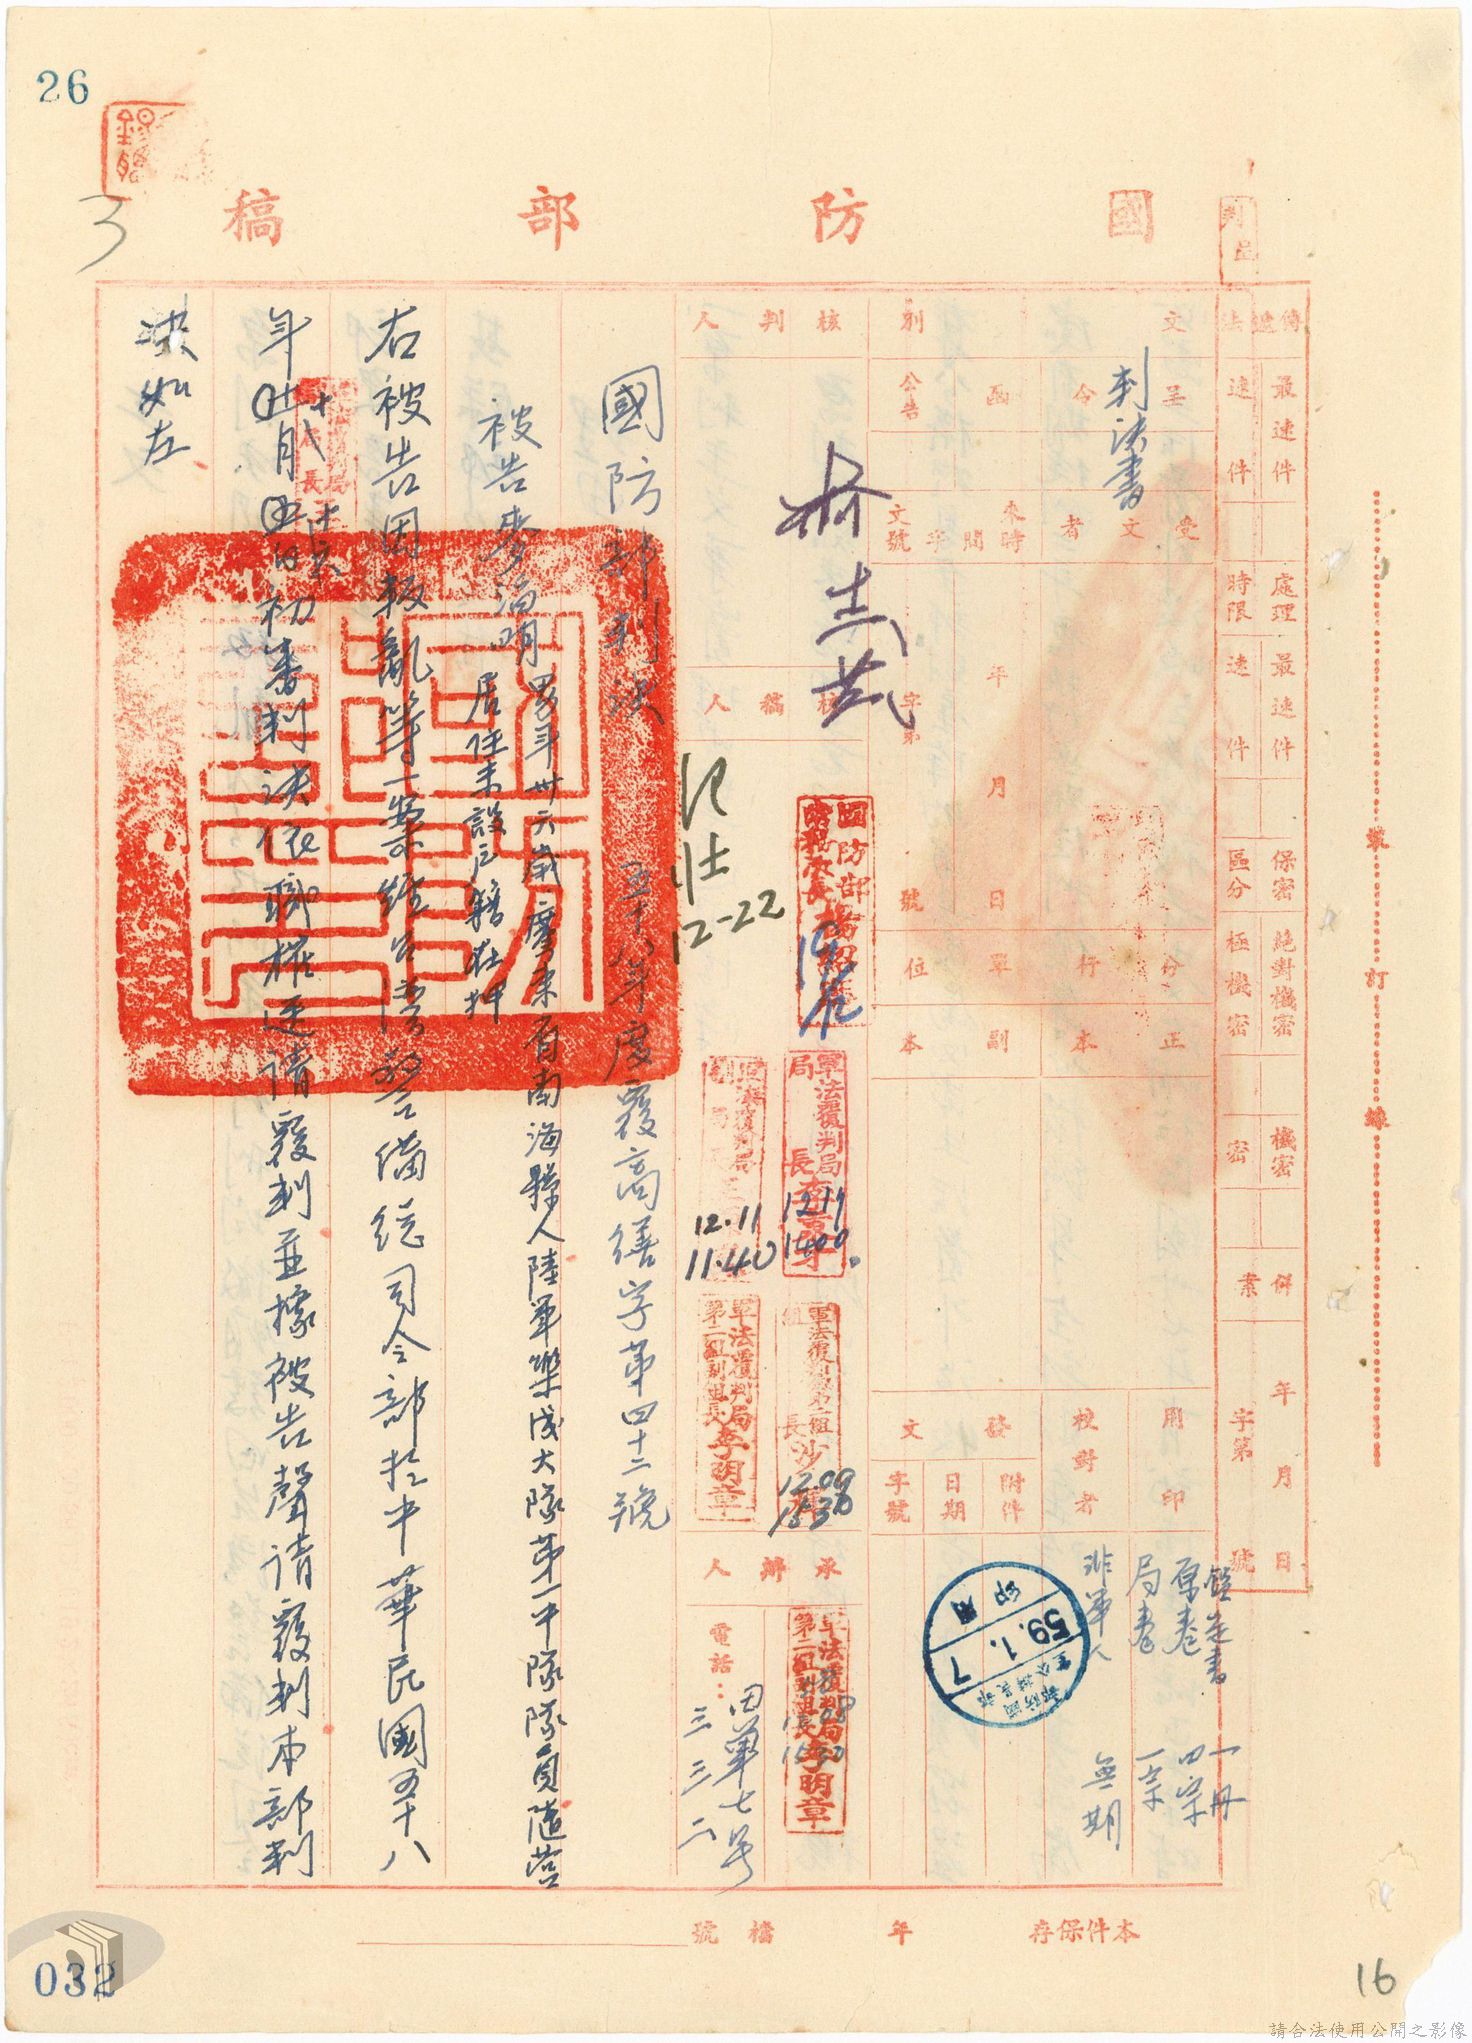 26
國防部稿
傳遞法
最速件
速件
處理時限
最速件
速件
保密區分
絕對機密
極機密
機密
密
併案
年 月 日
字第 號
文別
呈
令
函
公告
判決書
受文者
來文
時間
字號
年 月 日
字第 號
分行單位
正本
副本
用印
校對者
發文
附件
日期
字號
鑑定書 一冊
原卷 四宗
局卷 一宗
非軍人 無期
用印
59.1.7
核判人
核稿人
12-22
軍法覆判局局長
1219
1400
12.11
11.40
軍法覆判局第二組副組長李明章
12.09
1530
承辦人
軍法覆判局第二組副組長李明章
電話：
三三二
國防部判決 五十八年度覆高繕字第四十二號
被告麥海明男年卅六歲廣東省南海縣人陸軍樂成大隊第一中隊隊員隨營
居住未設戶籍在押
右被告因叛亂等一案經台灣警備總司令部於中華民國五十八
年
十八
初審判決依職權逕請覆判並據被告聲請覆判本部判
決如左
裝
訂
線
本件保存 年
檔號
3
032
16
請合法使用公開之影像